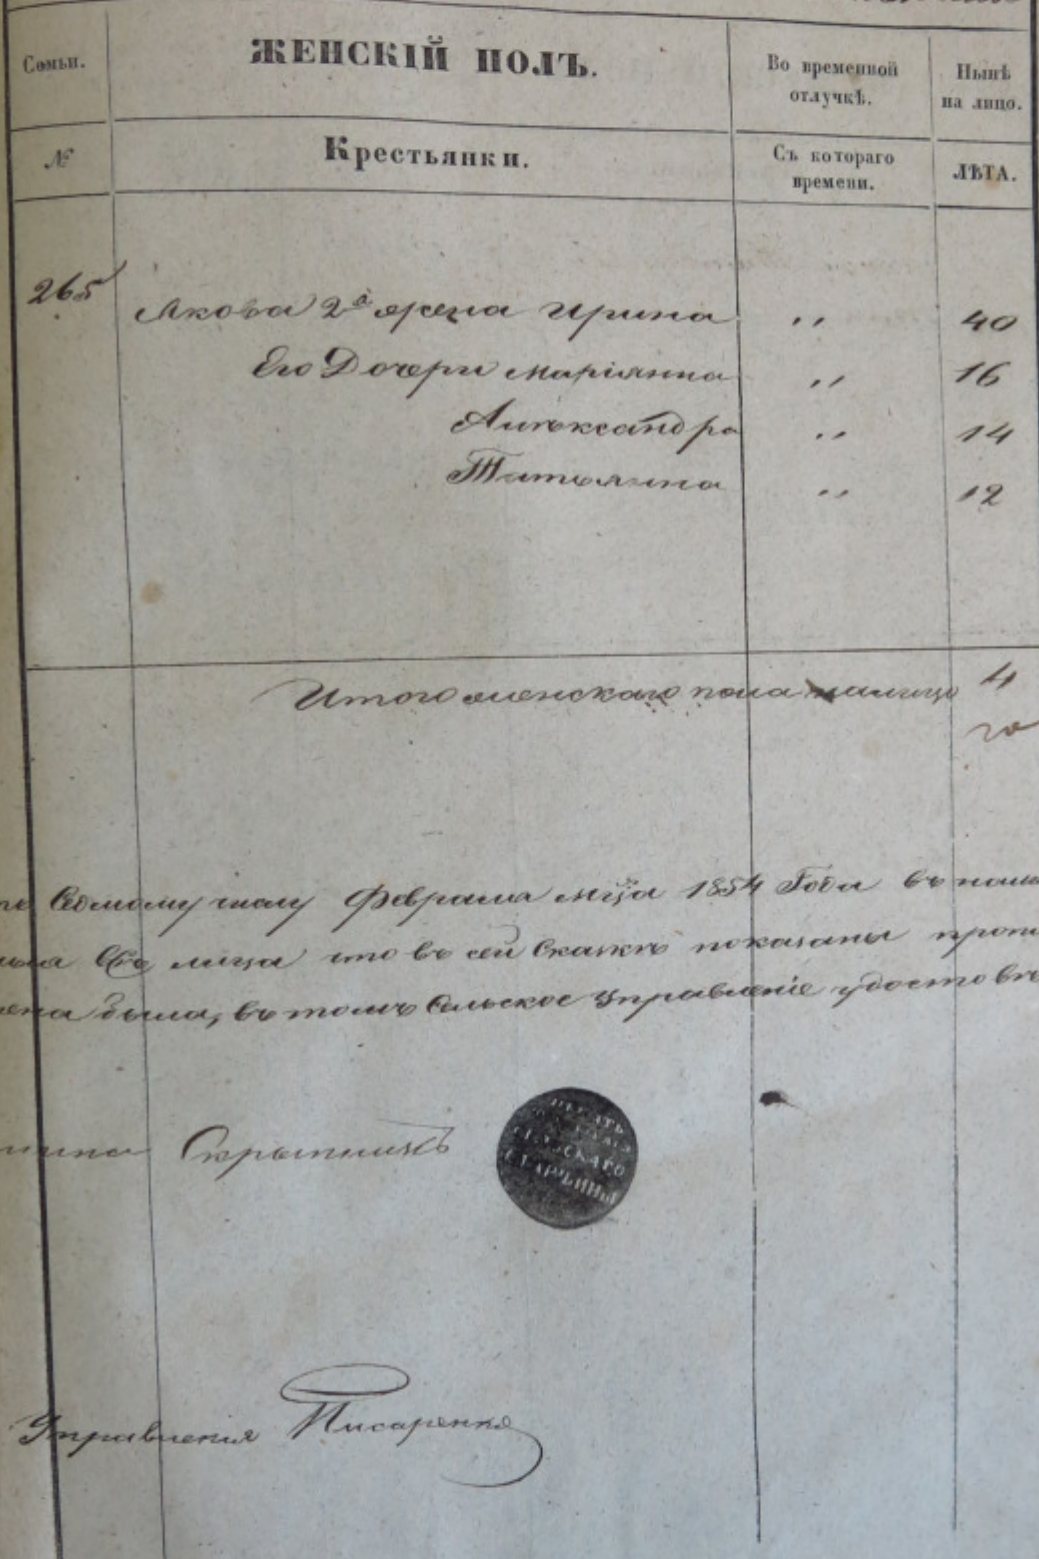 Семьи. ЖЕНСКІЙ ПОЛЪ. Во временной отлучкѣ. Нынѣ на лицо.
№ Крестьянки. Съ котораго времени. ЛѢТА.
265 Якова 2ª жена Ирина " 40
Его Дочери Маріянна " 16
Александра " 14
Татьянна " 12
Итого женскаго пола налицо 4
Седмому числу Февраля м̃ца 1854 Года въ
лица что въ сей Сказкѣ показаны
была, въ томъ Сельское Управленіе удостовѣ
Скрыпникъ
ПЕЧАТЬ
СЕЛЬСКАГО
СТАРШИНЫ
Управленія Писаренко